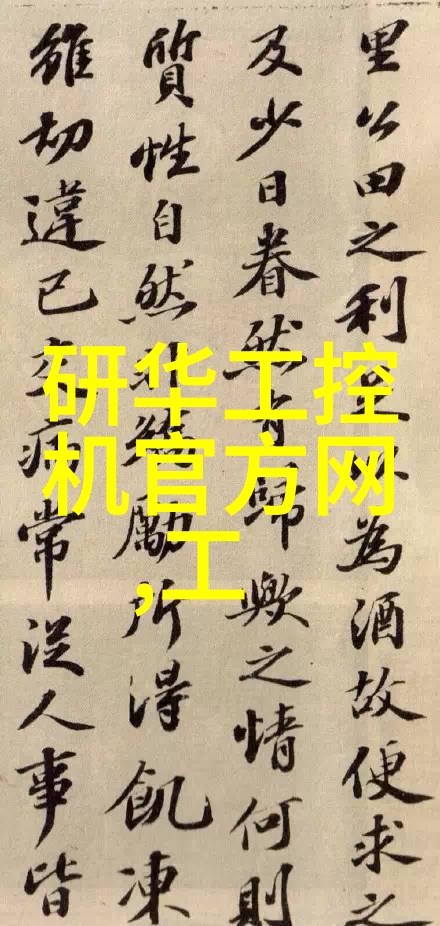 里公田之利為酒故便求之
及少日眷然有歸歟之情何則
質性自然非矯勵所得飢凍
雖切違己交病常從人事皆
研华工控
机官方网
,工